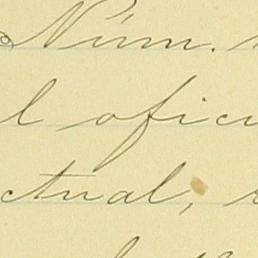 Núm.
l ofici
ctual,